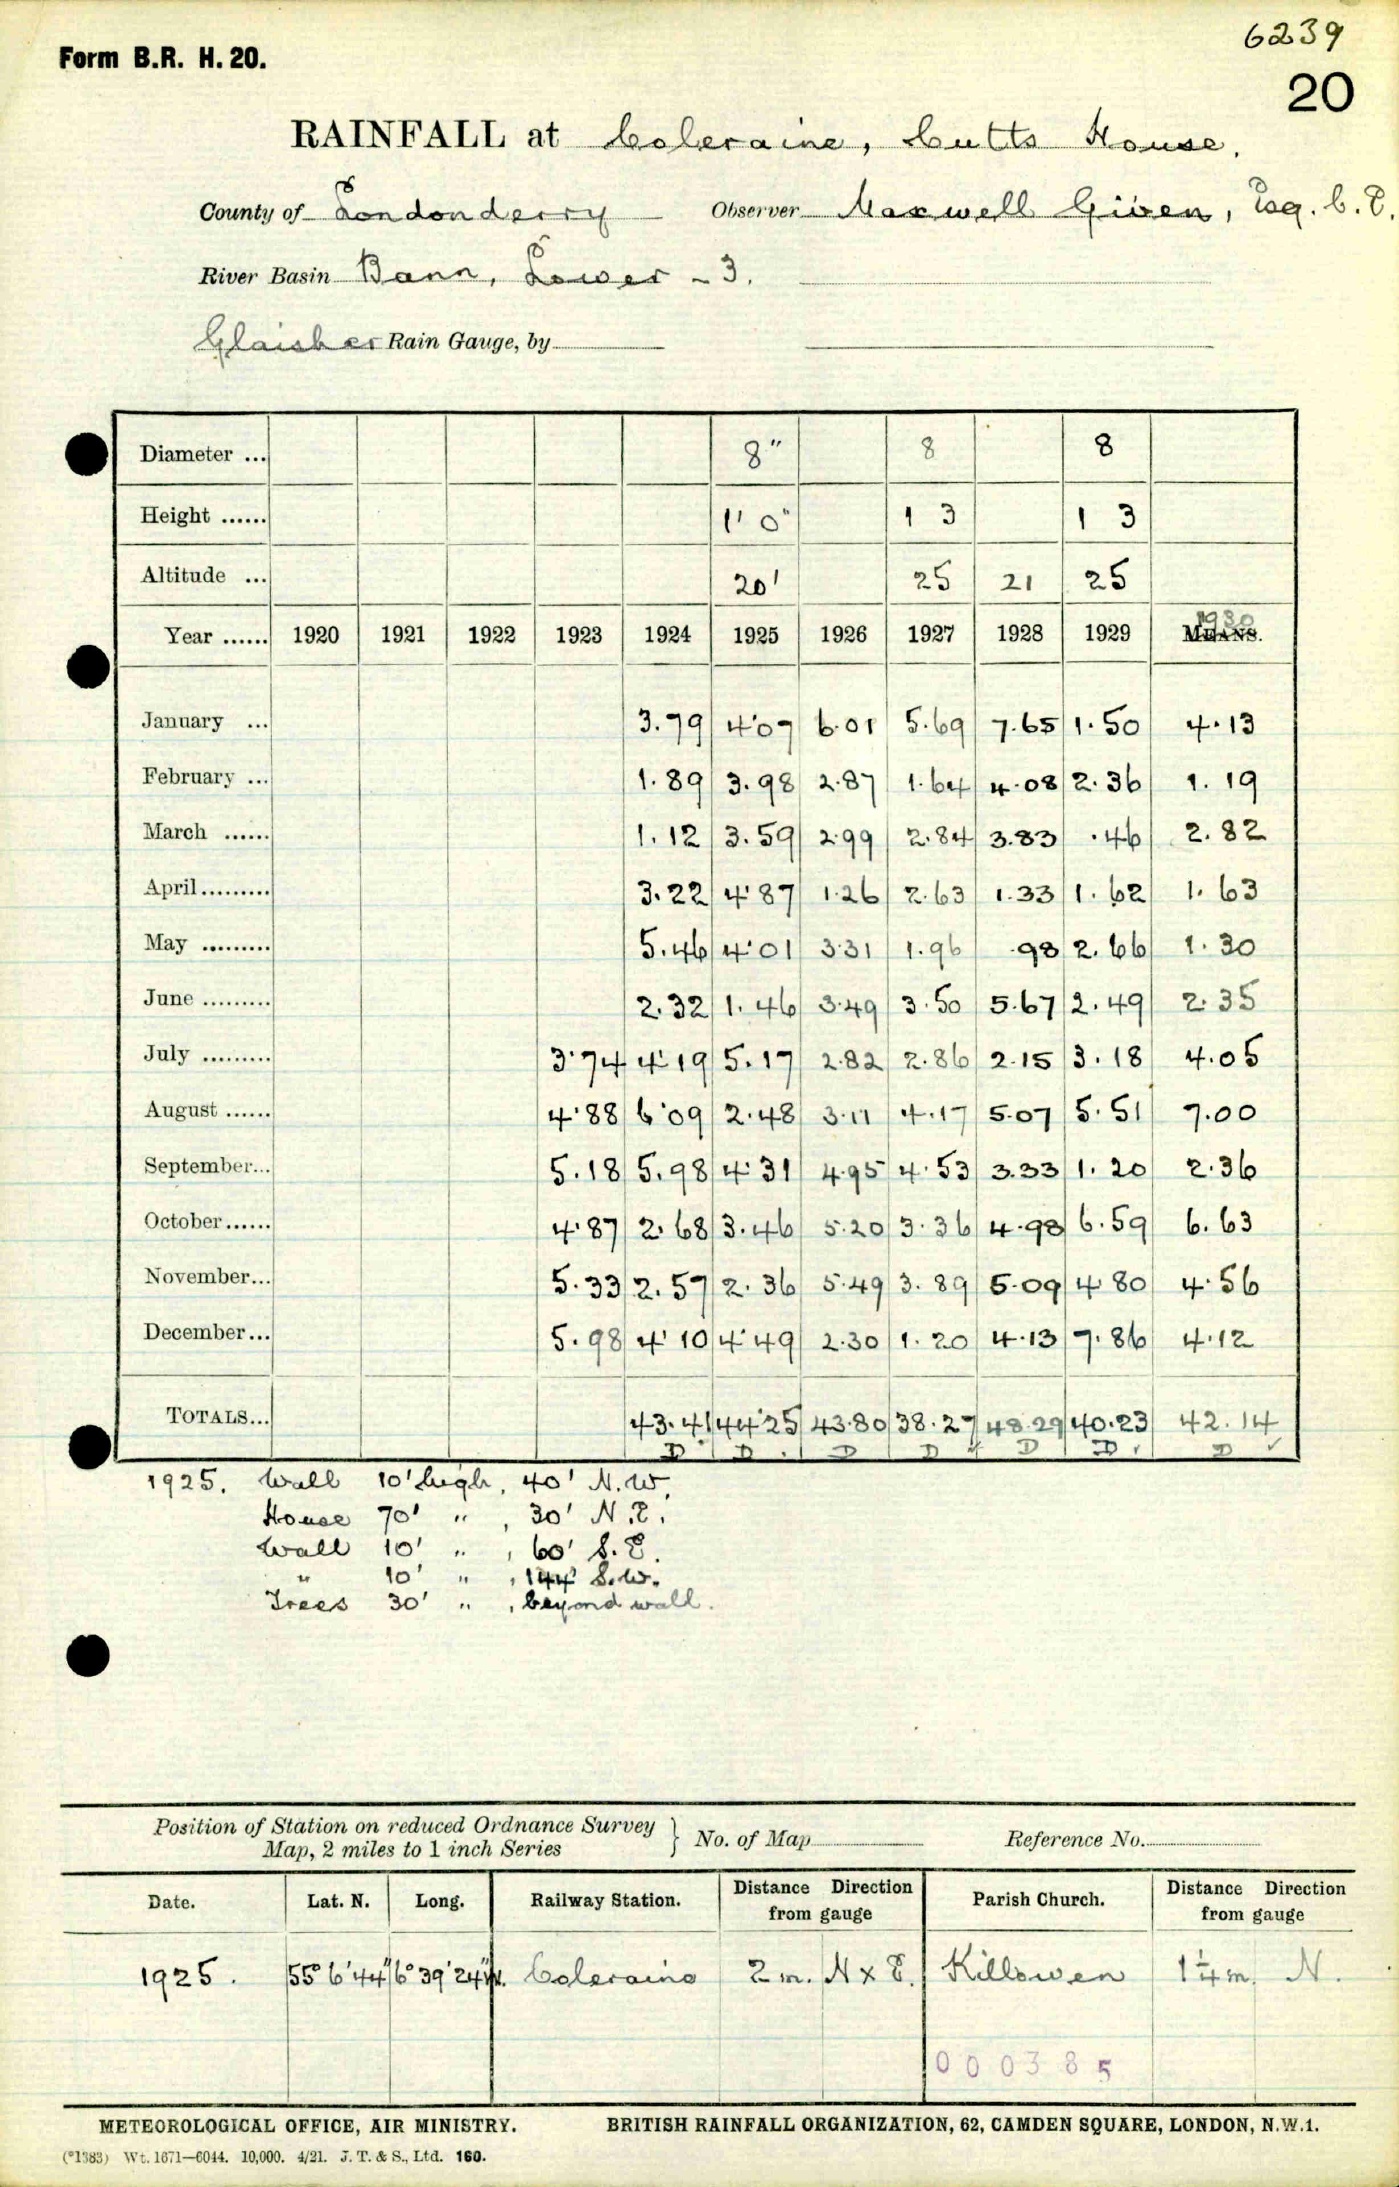 6239
Form B.R. H. 20.
20
RAINFALL at Coleraine, Cutts House.
County of Londonderry Observer Maxwell Given, Esq. C.E.
River Basin Bann, Lower - 3.
Glaisher Rain Gauge, by
Diameter ... 8" 8 8
Height ...... 1' 0" 1 3 1 3
Altitude ... 20' 25 21 25
Year ...... 1920 1921 1922 1923 1924 1925 1926 1927 1928 1929 MEANS. 1930
January ... 3.79 4.07 6.01 5.69 7.65 1.50 4.13
February ... 1.89 3.98 2.87 1.64 4.08 2.36 1.19
March ...... 1.12 3.59 2.99 2.84 3.83 .46 2.82
April ......... 3.22 4.87 1.26 2.63 1.33 1.62 1.63
May ......... 5.46 4.01 3.31 1.96 .98 2.66 1.30
June ......... 2.32 1.46 3.49 3.50 5.67 2.49 2.35
July ......... 3.74 4.19 5.17 2.82 2.86 2.15 3.18 4.05
August ...... 4.88 6.09 2.48 3.11 4.17 5.07 5.51 7.00
September... 5.18 5.98 4.31 4.95 4.53 3.33 1.20 2.36
October ...... 4.87 2.68 3.46 5.20 3.36 4.98 6.59 6.63
November... 5.33 2.57 2.36 5.49 3.89 5.09 4.80 4.56
December... 5.98 4.10 4.49 2.30 1.20 4.13 7.86 4.12
TOTALS... 43.41 44.25 43.80 38.27 48.29 40.23 42.14
D D D D D D D
1925. Wall 10' high, 40' N.W.
House 70' " , 30' N.E.
Wall 10' " , 60' S.E.
" 10' " , 144' S.W.
Trees 30' " , beyond wall.
Position of Station on reduced Ordnance Survey
Map, 2 miles to 1 inch Series } No. of Map Reference No.
Date. Lat. N. Long. Railway Station. Distance Direction from gauge Parish Church. Distance Direction from gauge
1925. 55° 6' 44" 6° 39' 24" W. Coleraine 2 m. N x E. Killowen 1¼ m. N.
000385
METEOROLOGICAL OFFICE, AIR MINISTRY. BRITISH RAINFALL ORGANIZATION, 62, CAMDEN SQUARE, LONDON, N.W.1.
(*1383) Wt. 1671—6044. 10,000. 4/21. J. T. & S., Ltd. 160.